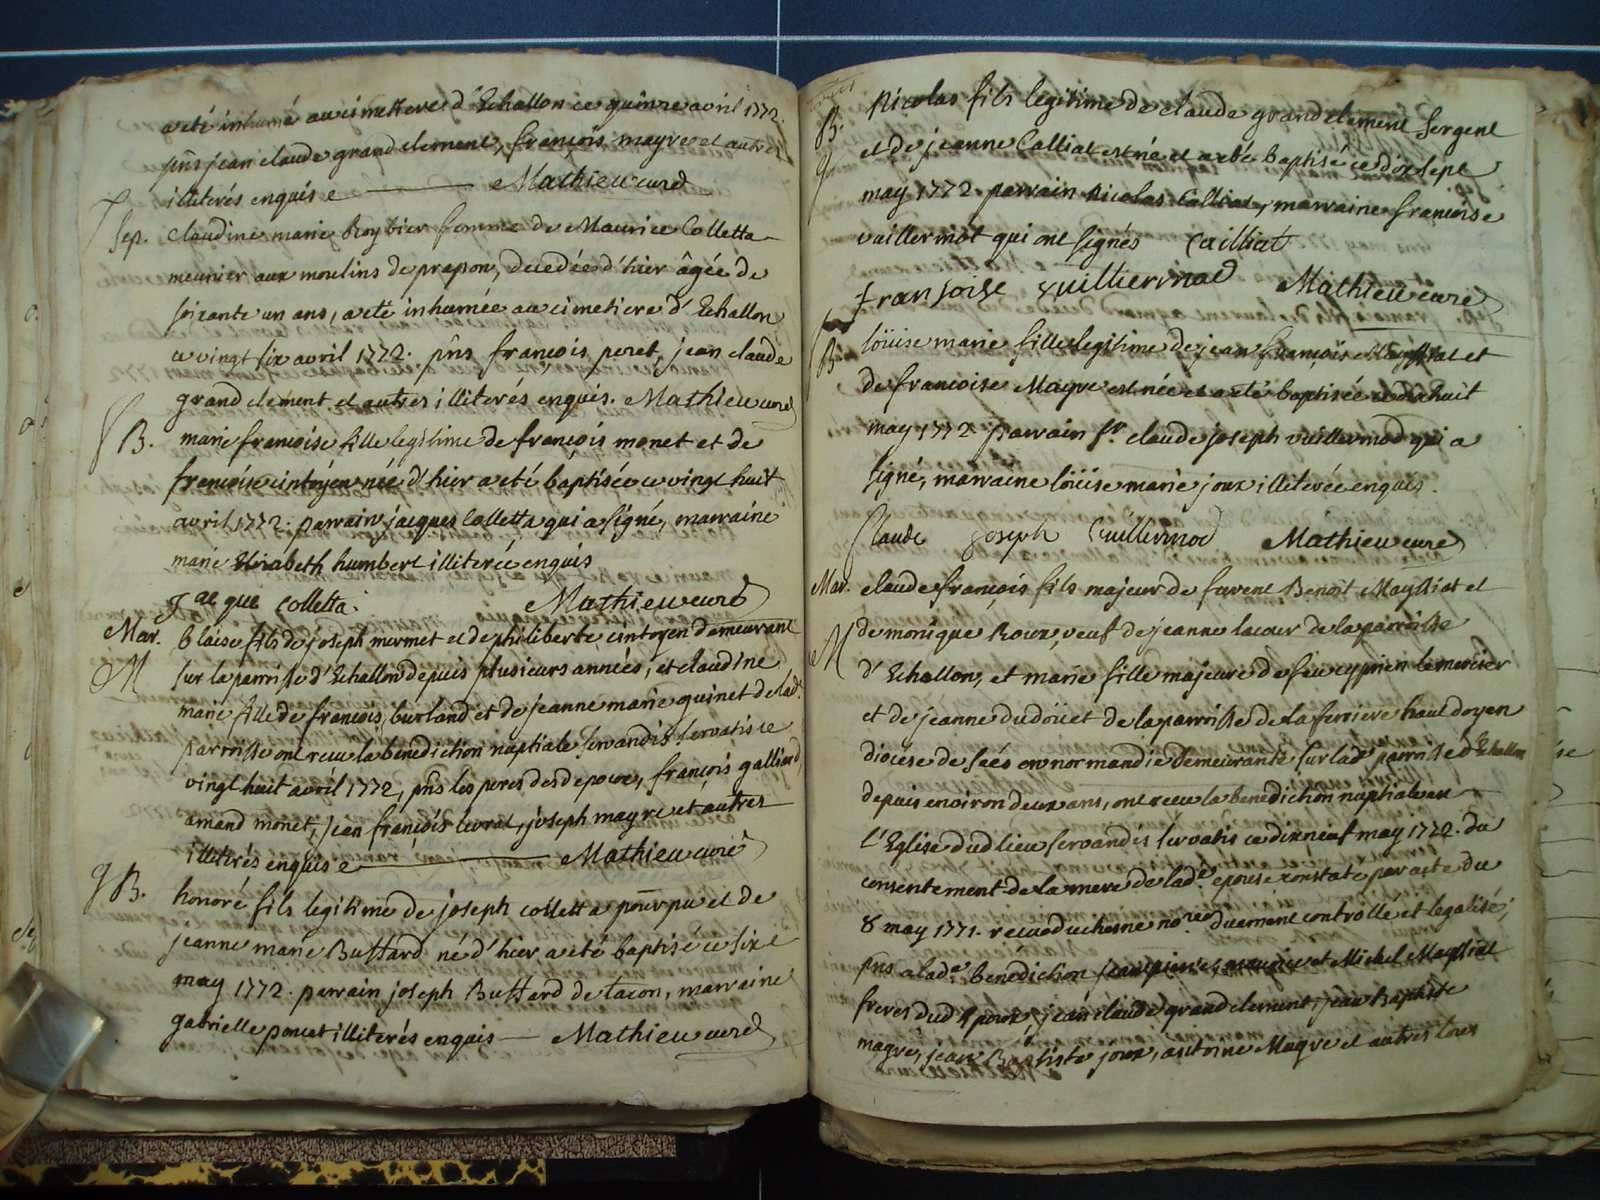 a eté inhumé au cimettere d'Echallon ce quinze avril 1772.
pñs jean claude grand clement, françois mayre et autres
illiterés enquis e Mathieu curé
Sep. claudine marie Roybier femme de Maurice Colletta
meunier aux moulins de prapon, decedée d'hier âgée de
soixante un ans, a eté inhumée au cimetiere d'Echallon
ce vingt six avril 1772. pñs françois peret, jean claude
grand clement et autres illiterés enquis. Mathieu curé
B. marie françoise fille legitime de françois monet et de
francoise cintoyen née d'hier a eté baptisée ce vingt huit
avril 1772. parrain jacques Colletta qui a signé, marraine
marie Elizabeth humbert illiterée enquis
jacque colletta. Mathieu curé
Mar. blaise fils de joseph mermet et de philiberte cintoyen demeurant
M sur la parroisse d'Echallon depuis plusieurs années, et claudine
marie fille de françois burland et de jeanne marie guinet de lad.
parroisse ont recu la benediction nuptiale servandis servatis ce
vingt huit avril 1772, pñs les peres des d epoux, françois galliard
amand monet, jean françois livrat, joseph mayre et autres
illiterés enquis e Mathieu curé
B. honoré fils legitime de joseph colletta pourpu et de
jeanne marie Buffard né d'hier a eté baptisé ce six
may 1772. parrain joseph Buffard de lacon, marraine
gabrielle poncet illiterés enquis Mathieu curé
B. Nicolas fils legitime de claude grand clement sergent
et de jeanne Calliat est né et a eté baptisé ce dix sept
may 1772 parrain Nicolas Calliat, marraine francoise
vuillermot qui ont signés Cailliat
fransoise vuilliermod Mathieu curé
B. loüise marie fille legitime de jean françois Maysiat et
de francoise Mayre est née et a eté baptisée ce dix huit
may 1772 parrain sr. claude joseph vuillermod qui a
signé, marraine loüise marie joux illiterée enquis.
Claude joseph Vuillermod Mathieu curé
Mar. claude françois fils majeur de furent Benoit Maysiat et
M de monique Roux, veuf de jeanne lacour de la parroisse
d'Echallon, et marie fille majeure de feu cyprien lemercier
et de jeanne dudoüet de la parroisse de la ferriere haut doyen
diocese de séés en normandie demeurante sur lad. parroisse d'Echallon
depuis environ deux ans, ont receu la benediction nuptiale en
l'Eglise dud lieu servandis servatis ce dix neuf may 1772. du
consentement de la mere de lad.e epouse constaté par acte du
8 may 1771. recu duchesne no.re duement controllé et legalisé;
pñs a lad.e benediction jean pierre et Michel Maysiat
freres dud epoux, jean claude grand clement, jean Baptiste
magre, jean Baptiste joux, antoine Mayre et autres tous